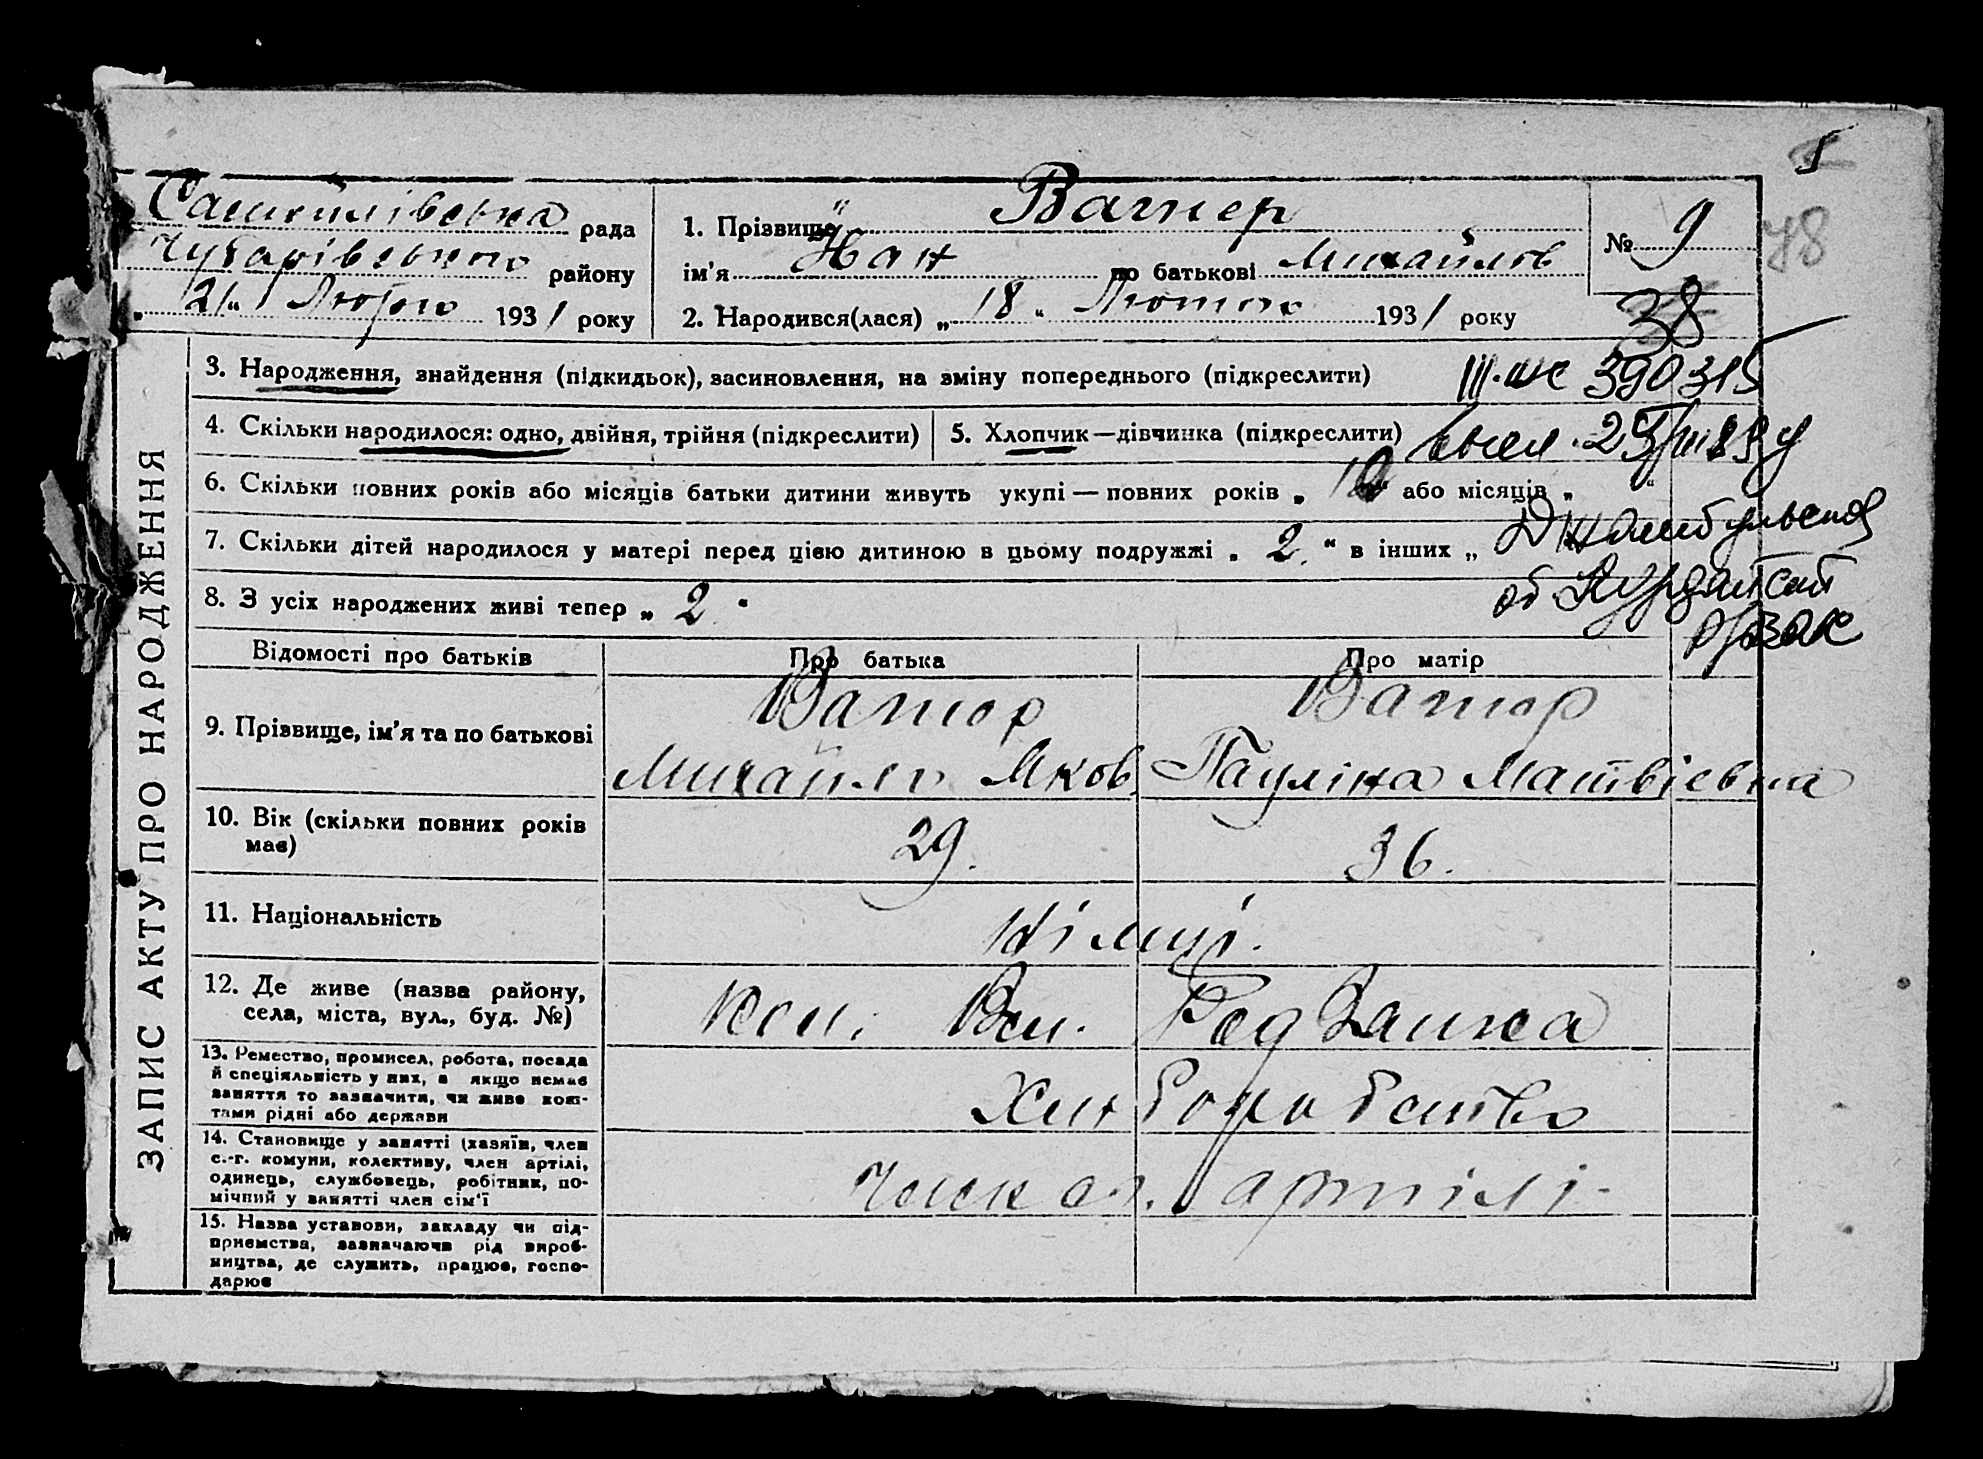 5
78
Вагнер
рада
1. Прізвище
№ 9
Чубарівського району
ім'я Йоан по батькові Михайлов
„ 21 “ Лютого 1931 року
2. Народився(лася) „ 18 “ Лютого 1931 року
38
3. Народження, знайдення (підкидьок), засиновлення, на зміну попереднього (підкреслити)
390315
4. Скільки народилося: одно, двійня, трійня (підкреслити)
5. Хлопчик—дівчинка (підкреслити)
6. Скільки повних років або місяців батьки дитини живуть укупі — повних років „ або місяців „ “
7. Скільки дітей народилося у матері перед цією дитиною в цьому подружжі „ 2. “ в інших „
Джамбульской
об
8. З усіх народжених живі тепер „ 2 “
Відомості про батьків
Про батька
Про матір
9. Прізвище, ім'я та по батькові
Вагнер
Михайло Яков.
Вагнер
Пауліна Матвієвна
10. Вік (скільки повних років має)
29.
36.
11. Національність
Німці.
12. Де живе (назва району,
села, міста, вул., буд. №)
кол.
13. Ремество, промисел, робота, посада
й спеціяльність у них, а якщо немає
заняття то зазначити, чи живе кош-
тами рідні або держави
Хліборобство
14. Становище у занятті (хазяїн, член
с.-г. комуни, колективу, член артілі,
одинець, службовець, робітник, по-
мічний у занятті член сім'ї
член с.г. артілі.
15. Назва установи, закладу чи під-
приємства, зазначаючи рід вироб-
ництва, де служить, працює, госпо-
дарює
ЗАПИС АКТУ ПРО НАРОДЖЕННЯ